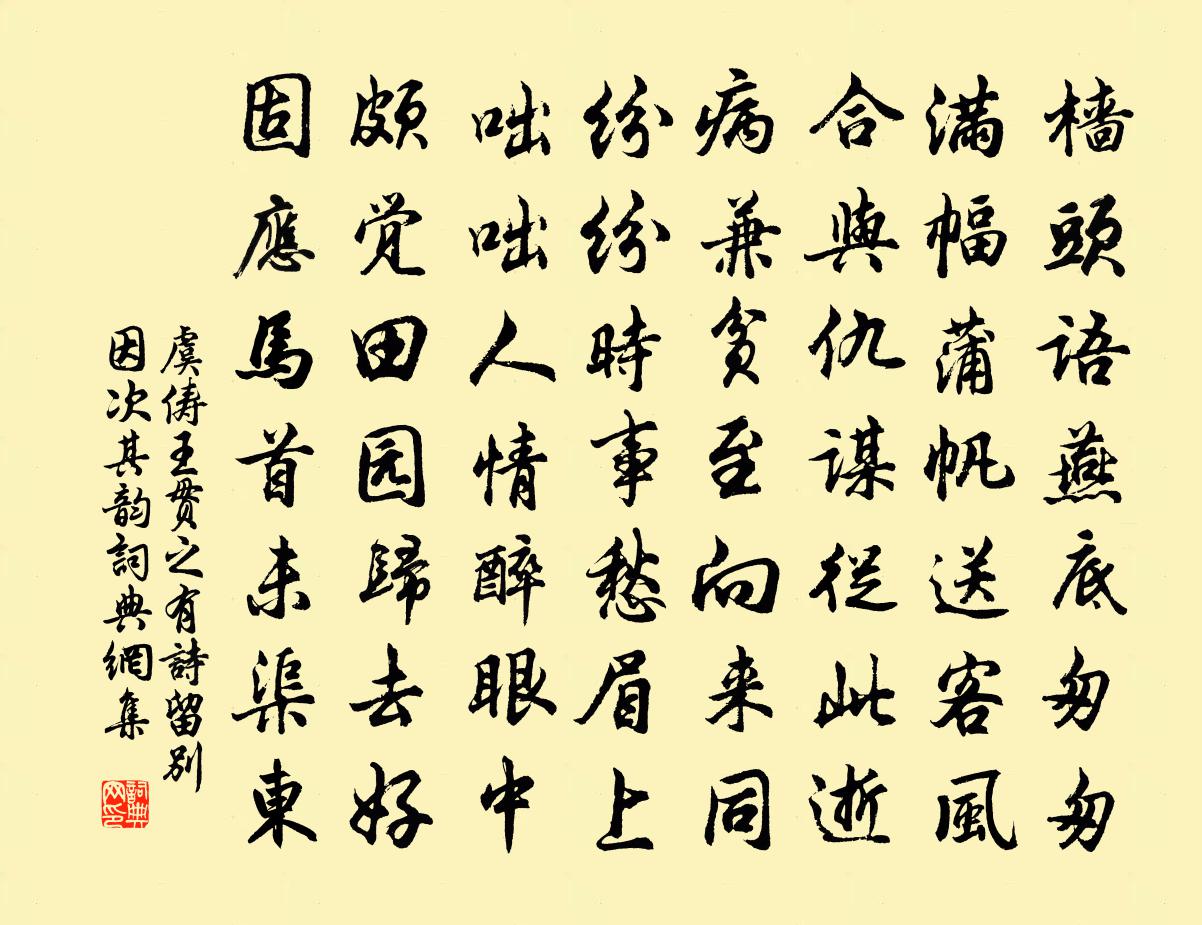 樯頭語燕底匆匆
满幅蒲帆送客風
合與仇謀從此逝
病兼貧至向来同
紛紛時事愁眉上
咄咄人情醉眼中
頗覚田园歸去好
固應馬首未渠東
虞俦王贯之有詩留别
因次其韵詞典網集
詞典网印